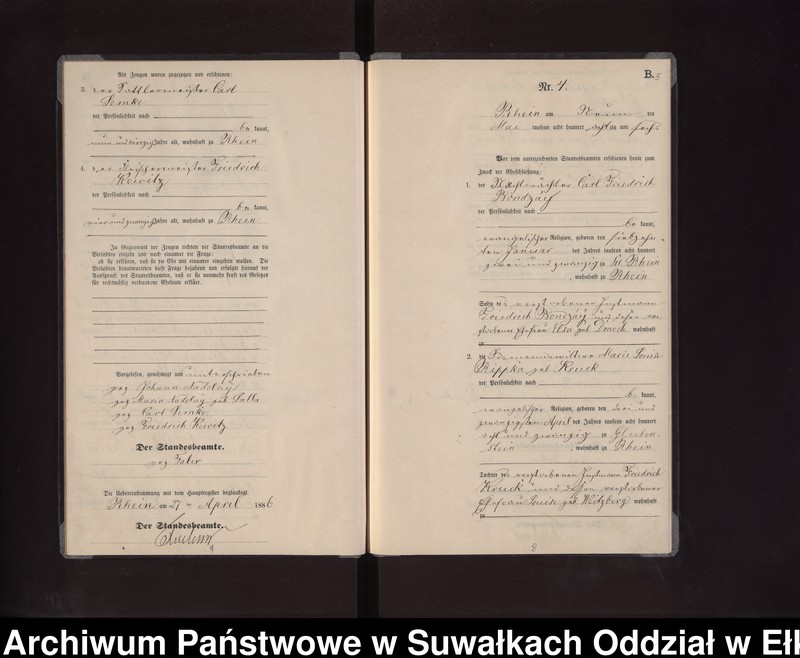 Als Zeugen waren zugezogen und erschienen:
3. der Sattlermeister Carl
Lemke
der Persönlichkeit nach
be kannt,
neun und vierzig Jahre alt, wohnhaft zu Rhein
4. der Fleischermeister Friedrich
Kewitz
der Persönlichkeit nach
be kannt,
vier und zwanzig Jahre alt, wohnhaft zu Rhein
In Gegenwart der Zeugen richtete der Standesbeamte an die
Verlobten einzeln und nach einander die Frage:
ob sie erklären, daß sie die Ehe mit einander eingehen wollen. Die
Verlobten beantworteten diese Frage bejahend und erfolgte hierauf der
Ausspruch des Standesbeamten, daß er sie nunmehr kraft des Gesetzes
für rechtmäßig verbundene Eheleute erkläre.
Vorgelesen, genehmigt und unterschrieben
gez. Johann Nadolny
gez. Maria Nadolny geb.
gez. Carl Lemke
gez. Friedrich Kewitz
Der Standesbeamte.
gez. Faber
Die Uebereinstimmung mit dem Hauptregister beglaubigt
Rhein am 27 ten April 1886
Der Standesbeamte.
B.
Nr. 4.
Rhein am Neun ten
Mai tausend acht hundert achtzig und sechs
Vor dem unterzeichneten Standesbeamten erschienen heute zum
Zweck der Eheschließung:
1. der Nachtwächter Carl Friedrich
Bondzay
der Persönlichkeit nach
be kannt,
evangelischer Religion, geboren den siebzehn-
ten Januar des Jahres tausend acht hundert
zwei und zwanzig zu Rhein
, wohnhaft zu Rhein
Sohn des verstorbenen Instmann
Friedrich Bondzay und dessen ver-
storbenen Ehefrau Elsa geb. Dmoch wohnhaft
zu
2. die Marie Louise
Rippka geb. Kruck
der Persönlichkeit nach
be kannt,
evangelischer Religion, geboren den drei und
zwanzigsten April des Jahres tausend acht hundert
acht und zwanzig zu
stein, wohnhaft zu Rhein
Tochter des verstorbenen Instmann Friedrich
Kruck und dessen verstorbener
Ehefrau Louise geb. Witzberg wohnhaft
zu
Archiwum Państwowe w Suwałkach Oddział w Ełk